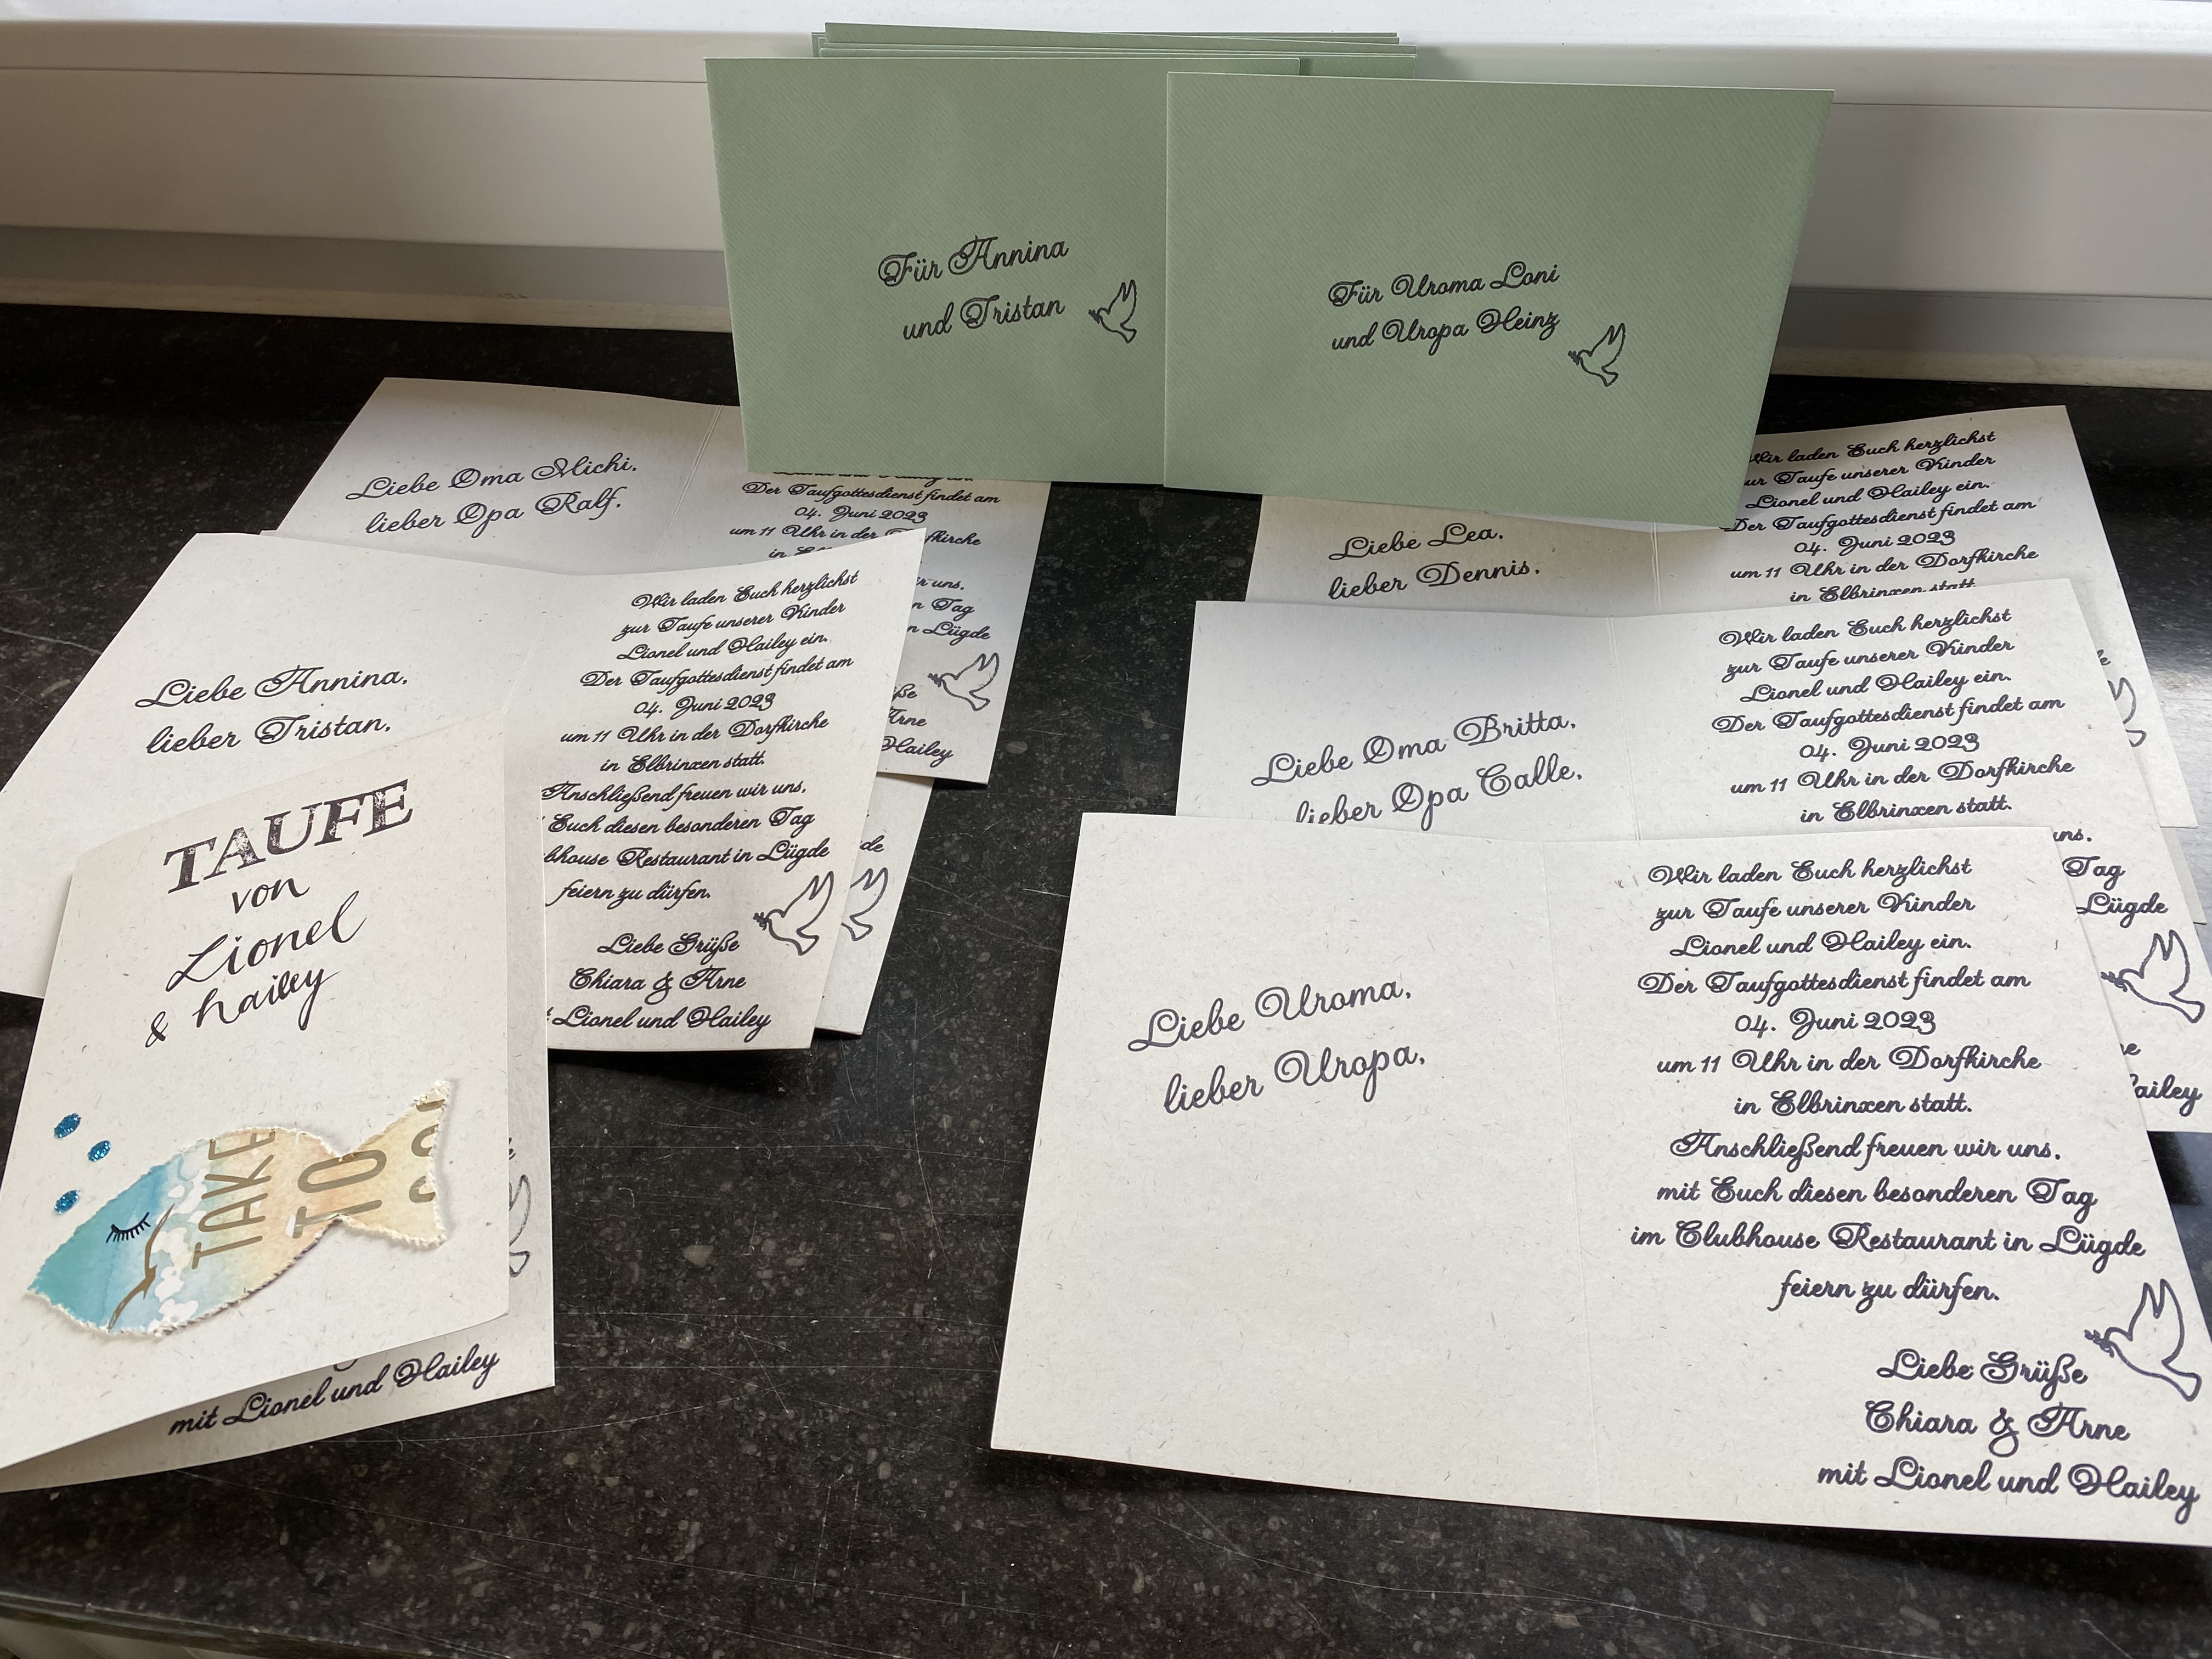 Für Annina
und Tristan
Für Uroma Loni
und Uropa Heinz
Liebe Oma Michi,
lieber Opa Ralf,
Der Taufgottesdienst findet am
04. Juni 2023
um 11 Uhr in der Dorfkirche
in
uns,
Tag
in Lügde
Arne
Hailey
Liebe Annina,
lieber Tristan,
Wir laden Euch herzlichst
zur Taufe unserer Kinder
Lionel und Hailey ein.
Der Taufgottesdienst findet am
04. Juni 2023
um 11 Uhr in der Dorfkirche
in Elbrinxen statt.
Anschließend freuen wir uns,
Euch diesen besonderen Tag
Restaurant in Lügde
feiern zu dürfen.
Liebe Grüße
Chiara & Arne
Lionel und Hailey
TAUFE
von
Lionel
& hailey
TAKE
TO
mit Lionel und Hailey
Liebe Lea,
lieber Dennis,
Wir laden Euch herzlichst
zur Taufe unserer Kinder
Lionel und Hailey ein.
Der Taufgottesdienst findet am
04. Juni 2023
um 11 Uhr in der Dorfkirche
in Elbrinxen statt.
Liebe Oma Britta,
lieber Opa Calle,
Wir laden Euch herzlichst
zur Taufe unserer Kinder
Lionel und Hailey ein.
Der Taufgottesdienst findet am
04. Juni 2023
um 11 Uhr in der Dorfkirche
in Elbrinxen statt.
uns,
Tag
Lügde
Hailey
Liebe Uroma,
lieber Uropa,
Wir laden Euch herzlichst
zur Taufe unserer Kinder
Lionel und Hailey ein.
Der Taufgottesdienst findet am
04. Juni 2023
um 11 Uhr in der Dorfkirche
in Elbrinxen statt.
Anschließend freuen wir uns,
mit Euch diesen besonderen Tag
im Clubhouse Restaurant in Lügde
feiern zu dürfen.
Liebe Grüße
Chiara & Arne
mit Lionel und Hailey